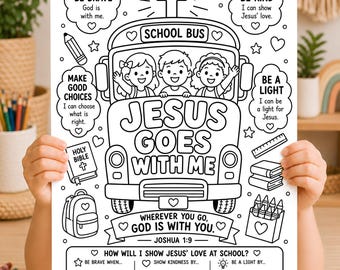 God is
with me.
I can show
Jesus' love.
SCHOOL BUS
MAKE
GOOD
CHOICES
I can choose
what is
right.
BE A
LIGHT
I can be
a light for
Jesus.
JESUS
GOES
WITH ME
HOLY
BIBLE
WHEREVER YOU GO,
GOD IS WITH YOU.
JOSHUA 1:9
HOW WILL I SHOW JESUS' LOVE AT SCHOOL?
BE BRAVE WHEN...
SHOW KINDNESS BY...
BE A LIGHT BY...